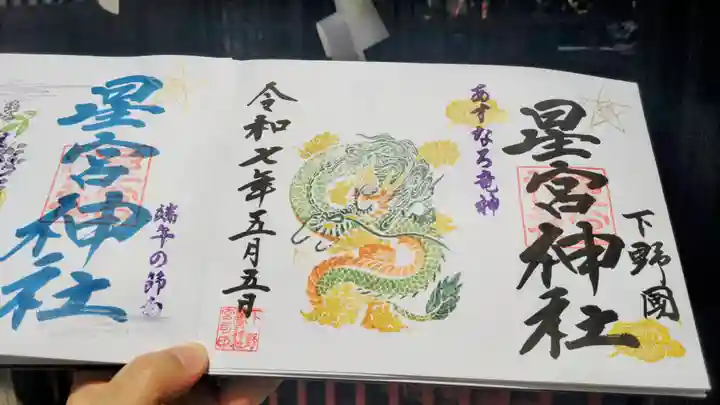 下野國
星宮神社
あすなろ竜神
令和七年五月五日
星宮神社
端午の節句